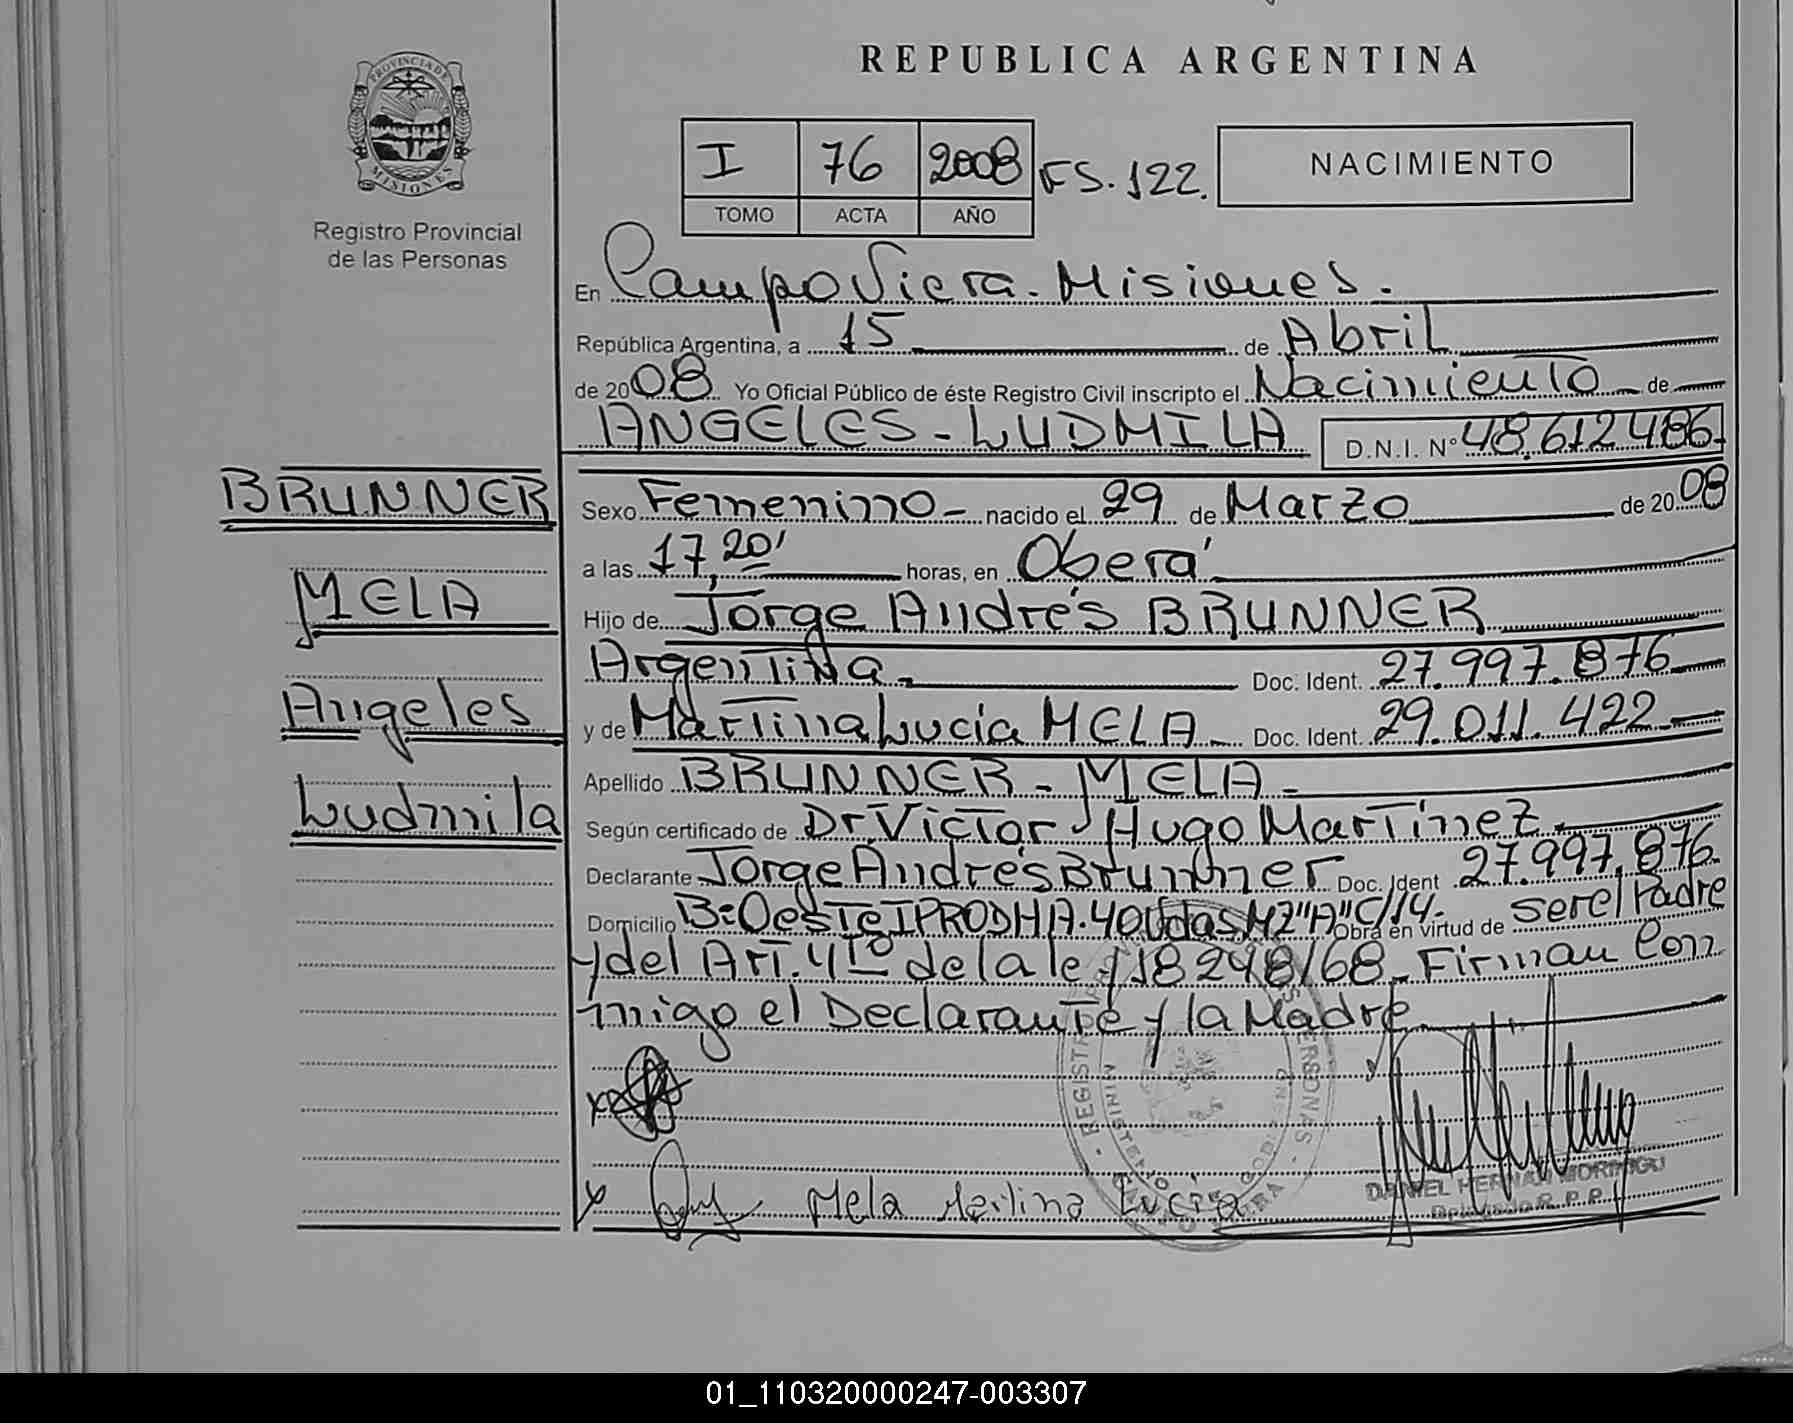 REPUBLICA ARGENTINA
PROVINCIA DE
MISIONES
Registro Provincial
de las Personas
I 76 2008 FS. 122.
TOMO ACTA AÑO
NACIMIENTO
En Campo Viera. Misiones.
República Argentina, a 15 de Abril
de 2008 Yo Oficial Público de éste Registro Civil inscripto el Nacimiento de
ANGELES - LUDMILA D.N.I. N° 48.612486
BRUNNER
MELA
Angeles
Ludmila
Sexo Femenino - nacido el 29 de Marzo de 2008
a las 17,20' horas, en Oberá
Hijo de Jorge Andrés BRUNNER
Argentina. Doc. Ident. 27.997.876
y de Martina Lucia MELA - Doc. Ident. 29.011.422
Apellido BRUNNER - MELA -
Según certificado de Dr Victor Hugo Martinez.
Declarante Jorge Andrés Brunner Doc. Ident 27.997.876
Domicilio B: Oeste IPRODHA. 40 Vdas. MZ "A" C/14. Obra en virtud de ser el Padre
y del Art. 4to de la ley 18248/68. Firman Con
migo el Declarante y la Madre
Mela Martina Lucia
DANIEL HERNAN
Delegado R.P.P.
REGISTRO PERSONAS
MINISTERIO GOBIERNO
01_110320000247-003307